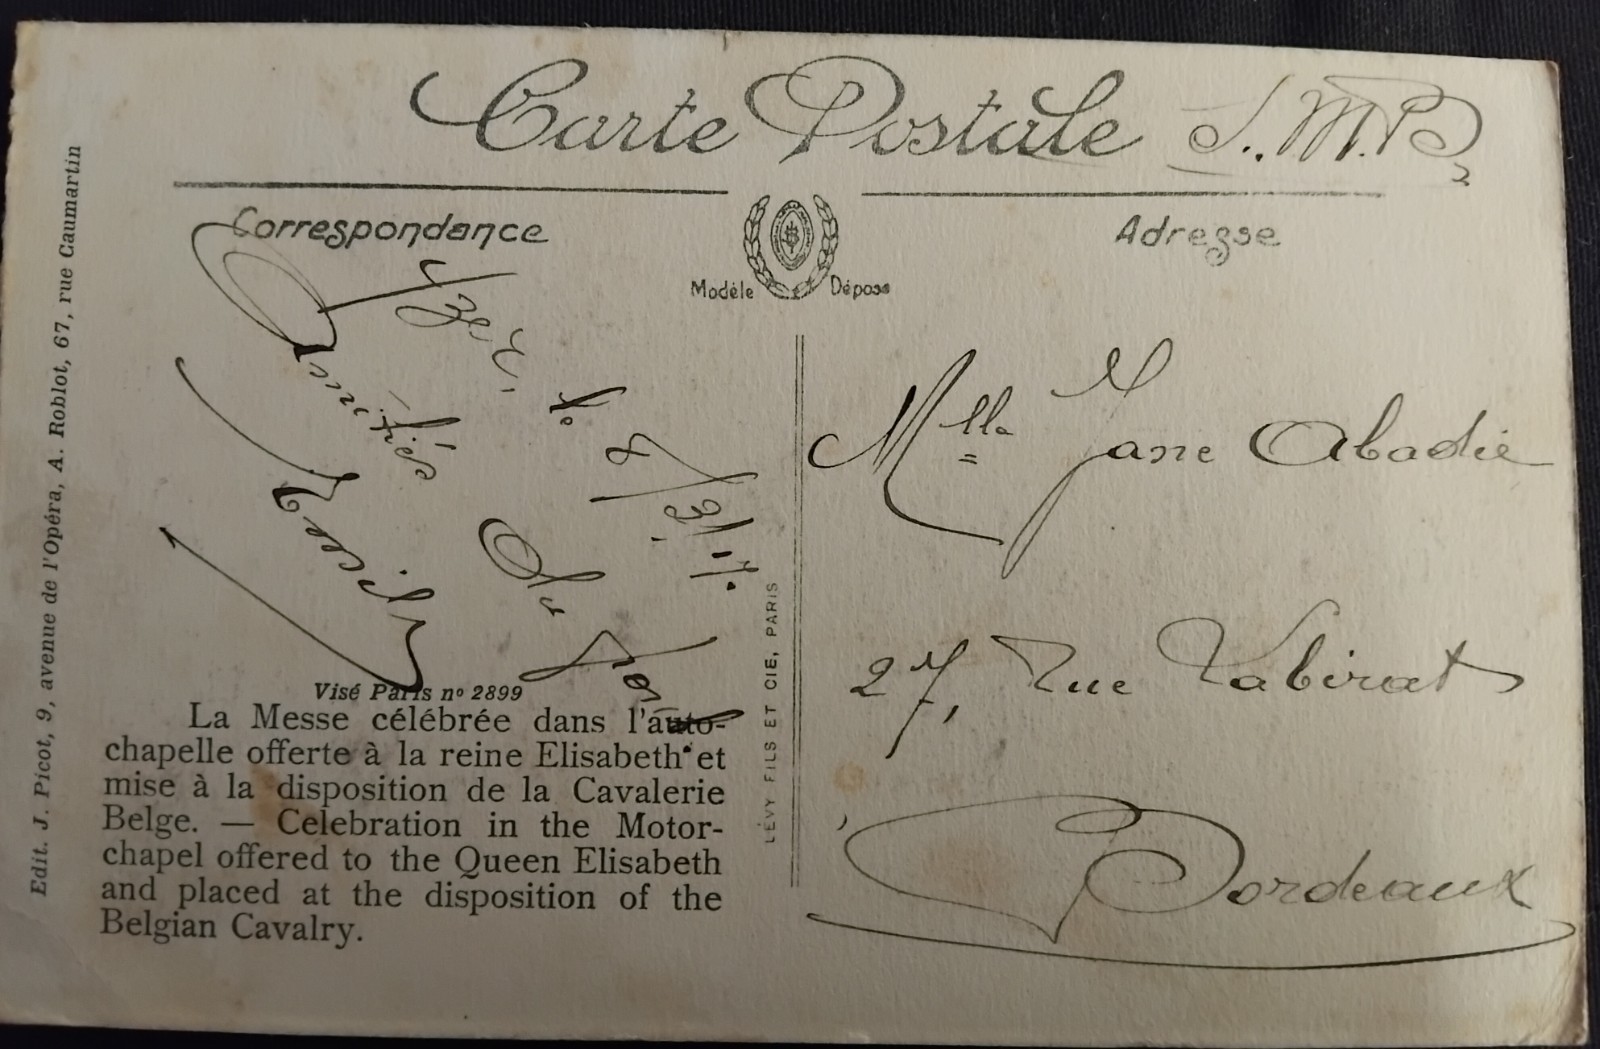 Carte Postale S.M.B
Correspondance
Adresse
Modèle Déposé
Yser, le 8/3/17.
Amitiés
Du
Mlle Jane Abadie
27, Rue Labirat
Bordeaux
Visé Paris nº 2899
La Messe célébrée dans l'auto-
chapelle offerte à la reine Elisabeth et
mise à la disposition de la Cavalerie
Belge. — Celebration in the Motor-
chapel offered to the Queen Elisabeth
and placed at the disposition of the
Belgian Cavalry.
LÉVY FILS ET CIE, PARIS
Edit. J. Picot, 9, avenue de l'Opéra, A. Roblot, 67, rue Caumartin